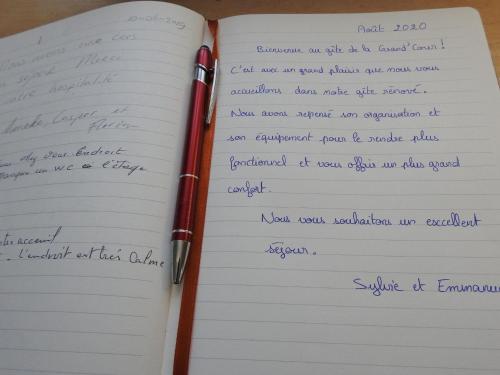 10-08-2019
séjour Merci
hospitalité
et
un WC à l'étage
accueil
L'endroit est très Calme
Août 2020
Bienvenue au gîte de la Grand'Cour !
C'est avec un grand plaisir que nous vous
accueillons dans notre gîte rénové.
Nous avons repensé son organisation et
son équipement pour le rendre plus
fonctionnel et vous offrir un plus grand
confort.
Nous vous souhaitons un excellent
séjour.
Sylvie et Emmanu